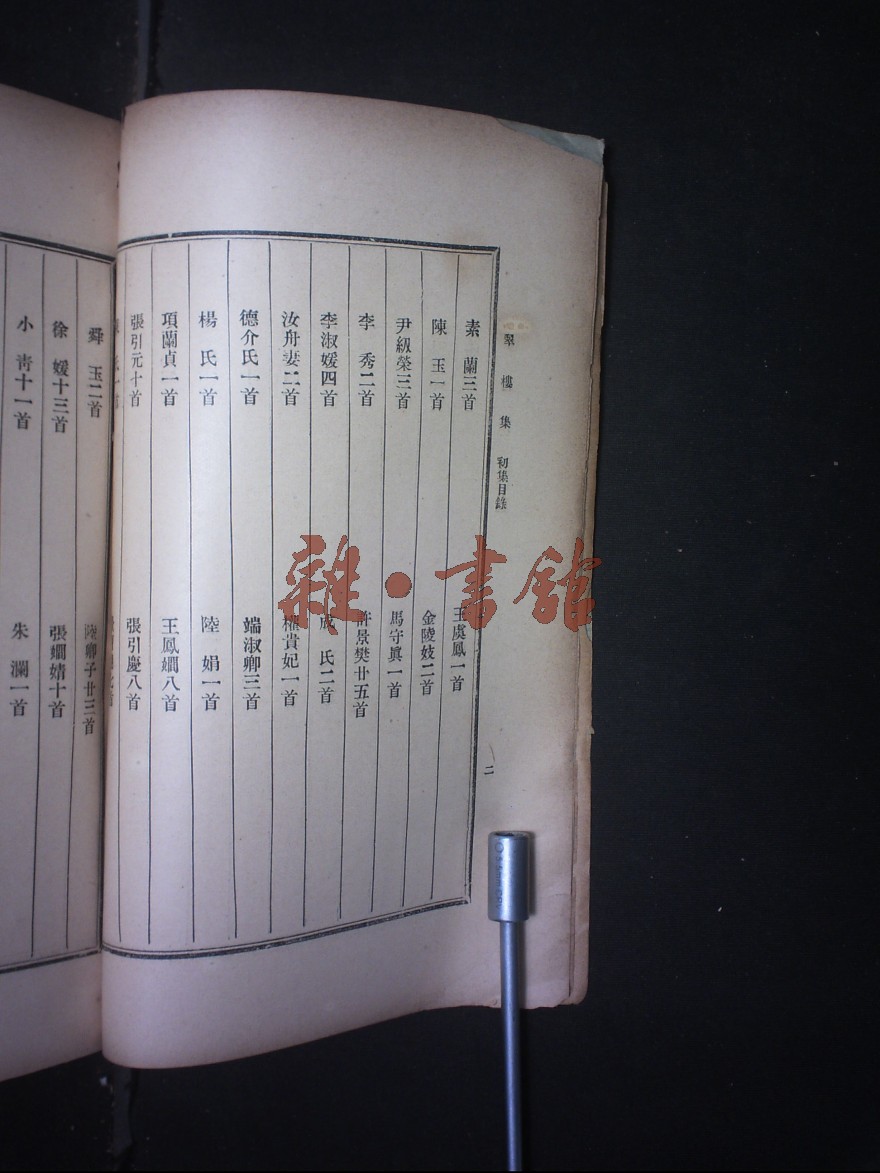 翠樓集 初集目錄
二
素蘭三首 王虞鳳一首
陳玉一首 金陵妓二首
尹紉榮三首 馬守真一首
李秀二首 許景樊廿五首
李淑媛四首 成氏二首
汝舟妻二首 權貴妃一首
德介氏一首 端淑卿三首
楊氏一首 陸娟一首
項蘭貞一首 王鳳嫻八首
張引元十首 張引慶八首
舜玉二首 陸卿子廿三首
徐媛十三首 張嫺婧十首
小青十一首 朱瀾一首
雜·書館